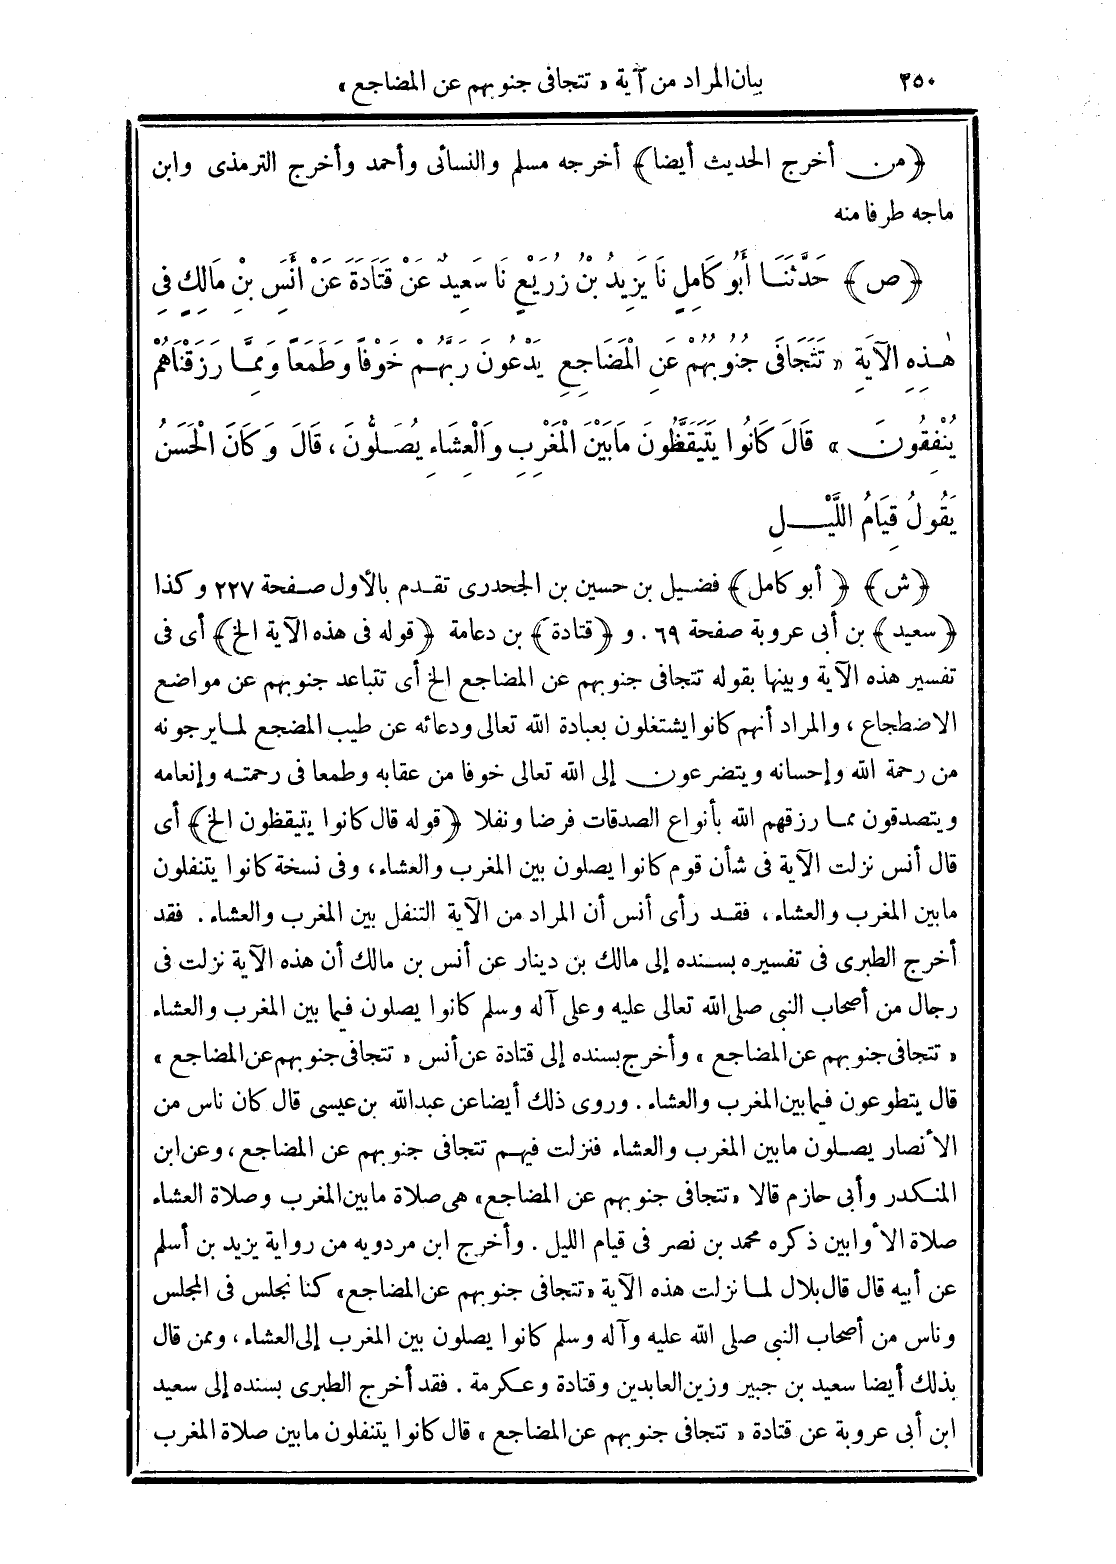 ٢٥٠ بيان المراد من آية «تتجافى جنوبهم عن المضاجع»
﴿من أخرج الحديث أيضا﴾ أخرجه مسلم والنسائى وأحمد وأخرج الترمذى وابن
ماجه طرفا منه
﴿ص﴾ حَدَّثَنَا أَبُو كَامِلٍ نَا يَزِيدُ بْنُ زُرَيْعٍ نَا سَعِيدٌ عَنْ قَتَادَةَ عَنْ أَنَسِ بْنِ مَالِكٍ فِى
هٰذِهِ الْآيَةِ «تَتَجَافَى جُنُوبُهُمْ عَنِ الْمَضَاجِعِ يَدْعُونَ رَبَّهُمْ خَوْفًا وَطَمَعًا وَمِمَّا رَزَقْنَاهُمْ
يُنْفِقُونَ» قَالَ كَانُوا يَتَيَقَّظُونَ مَابَيْنَ الْمَغْرِبِ وَالْعِشَاءِ يُصَلُّونَ، قَالَ وَكَانَ الْحَسَنُ
يَقُولُ قِيَامُ اللَّيْلِ
﴿ش﴾ ﴿أبو كامل﴾ فضيل بن حسين بن الجحدرى تقدم بالأول صفحة ٢٢٧ وكذا
﴿سعيد﴾ بن أبى عروبة صفحة ٦٩. و﴿قتادة﴾ بن دعامة ﴿قوله فى هذه الآية الخ﴾ أى فى
تفسير هذه الآية وبينها بقوله تتجافى جنوبهم عن المضاجع الخ أى تتباعد جنوبهم عن مواضع
الاضطجاع، والمراد أنهم كانوا يشتغلون بعبادة الله تعالى ودعائه عن طيب المضجع لما يرجونه
من رحمة الله وإحسانه ويتضرعون إلى الله تعالى خوفا من عقابه وطمعا فى رحمته وإنعامه
ويتصدقون مما رزقهم الله بأنواع الصدقات فرضا ونفلا ﴿قوله قال كانوا يتيقظون الخ﴾ أى
قال أنس نزلت الآية فى شأن قوم كانوا يصلون بين المغرب والعشاء، وفى نسخة كانوا يتنفلون
مابين المغرب والعشاء، فقد رأى أنس أن المراد من الآية التنفل بين المغرب والعشاء. فقد
أخرج الطبرى فى تفسيره بسنده إلى مالك بن دينار عن أنس بن مالك أن هذه الآية نزلت فى
رجال من أصحاب النبى صلى الله تعالى عليه وعلى آله وسلم كانوا يصلون فيما بين المغرب والعشاء
«تتجافى جنوبهم عن المضاجع» وأخرج بسنده إلى قتادة عن أنس «تتجافى جنوبهم عن المضاجع»
قال يتطوعون فيما بين المغرب والعشاء. وروى ذلك أيضا عن عبد الله بن عيسى قال كان ناس من
الأنصار يصلون مابين المغرب والعشاء فنزلت فيهم تتجافى جنوبهم عن المضاجع، وعن ابن
المنكدر وأبى حازم قالا «تتجافى جنوبهم عن المضاجع» هى صلاة مابين المغرب وصلاة العشاء
صلاة الأوابين ذكره محمد بن نصر فى قيام الليل. وأخرج ابن مردويه من رواية يزيد بن أسلم
عن أبيه قال قال بلال لما نزلت هذه الآية «تتجافى جنوبهم عن المضاجع» كنا نجلس فى المجلس
وناس من أصحاب النبى صلى الله عليه وآله وسلم كانوا يصلون بين المغرب إلى العشاء، وممن قال
بذلك أيضا سعيد بن جبير وزين العابدين وقتادة وعكرمة. فقد أخرج الطبرى بسنده إلى سعيد
ابن أبى عروبة عن قتادة «تتجافى جنوبهم عن المضاجع» قال كانوا يتنفلون مابين صلاة المغرب